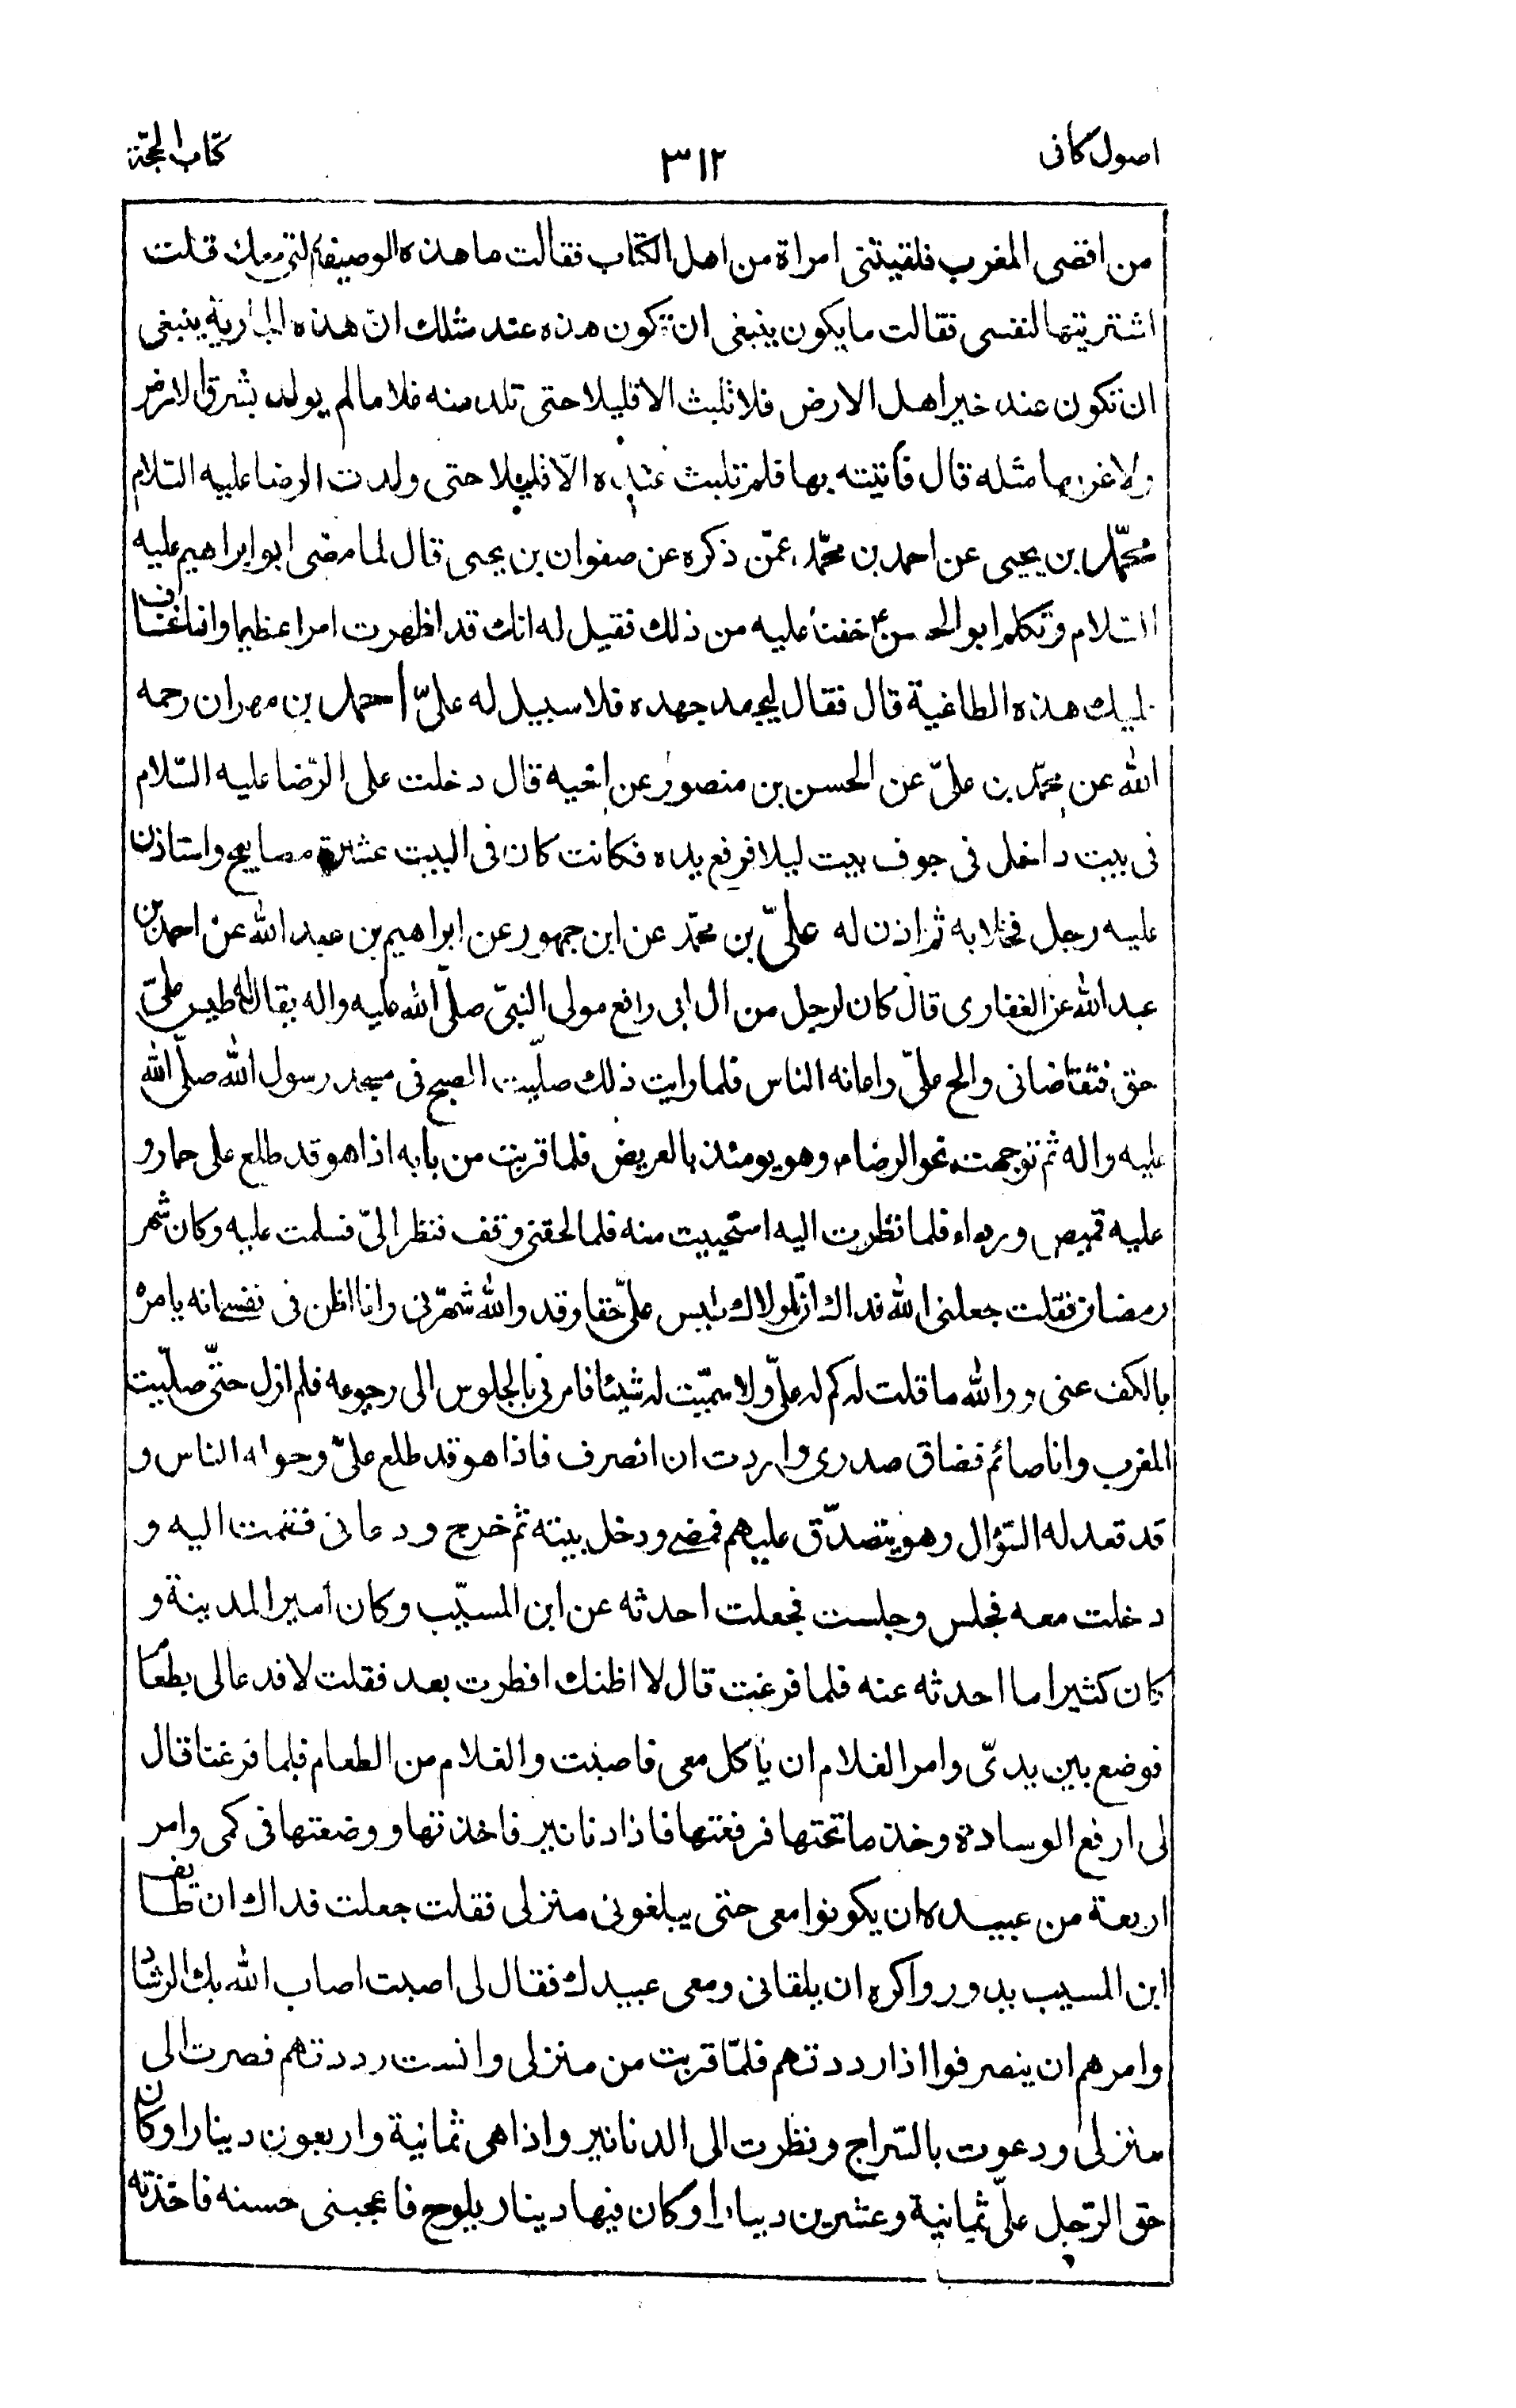 اصول كافى
٣١٢
كتاب الحجّة
من اقصى المغرب فلقيتنى امراة من اهل الكتاب فقالت ما هذه الوصيفة التى معك قلت
اشتريتها لنفسى فقالت ما يكون ينبغى ان تكون هذه عند مثلك انّ هذه الجارية ينبغى
ان تكون عند خير اهل الارض فلا تلبث الا قليلا حتى تلد منه غلاما لم يولد بشرق الارض
ولا غربها مثله قال فأتيته بها فلم تلبث عنده الّا قليلا حتى ولدت الرضا عليه السّلام
محمّد بن يحيى عن احمد بن محمّد عمّن ذكره عن صفوان بن يحيى قال لما مضى ابو ابراهيم عليه
السّلام وتكلم ابو الحسن ع خفنا عليه من ذلك فقيل له انك قد اظهرت امرا عظيما وانا نخاف
عليك هذه الطاغية قال فقال ليجهد جهده فلا سبيل له علىّ احمد بن مهران رحمه
الله عن محمّد بن علىّ عن الحسن بن منصور عن اخيه قال دخلت على الرّضا عليه السّلام
فى بيت داخل فى جوف بيت ليلا فرفع يده فكانت كان فى البيت عشرة مصابيح واستاذن
عليه رجل فخلا به ثم اذن له علىّ بن محمّد عن ابن جمهور عن ابراهيم بن عبد الله عن احمد بن
عبد الله عن الغفارى قال كان لرجل من ال ابى رافع مولى النبىّ صلّى الله عليه واله يقال له طيس علىّ
حق فتقاضانى والح علىّ واعانه الناس فلما رايت ذلك صلّيت الصبح فى مسجد رسول الله صلّى الله
عليه واله ثم توجهت نحو الرضا ع وهو يومئذ بالعريض فلما قربت من بابه اذا هو قد طلع على حمار و
عليه قميص ورداء فلما نظرت اليه استحييت منه فلما لحقنى وقف فنظر الىّ فسلمت عليه وكان شهر
رمضان فقلت جعلنى الله فداك انّ لمولاك طيس علىّ حقا وقد والله شهّرنى وانا اظن فى نفسى انه يامره
بالكف عنى ووالله ما قلت له كم له علىّ ولا سمّيت له شيئا فامرنى بالجلوس الى رجوعه فلم ازل حتّى صلّيت
المغرب وانا صائم فضاق صدرى واردت ان انصرف فاذا هو قد طلع علىّ وحوله الناس و
قد قعد له السّؤال وهو يتصدّق عليهم فمضى ودخل بيته ثم خرج ودعانى فقمت اليه و
دخلت معه فجلس وجلست فجعلت احدثه عن ابن المسيّب وكان امير المدينة و
كان كثيرا ما احدثه عنه فلما فرغت قال لا اظنك افطرت بعد فقلت لا فدعا لى بطعام
فوضع بين يدىّ وامر الغلام ان ياكل معى فاصبت والغلام من الطعام فلما فرغنا قال
لى ارفع الوسادة وخذ ما تحتها فرفعتها فاذا دنانير فاخذتها ووضعتها فى كمى وامر
اربعة من عبيده ان يكونوا معى حتى يبلغونى منزلى فقلت جعلت فداك ان طايف
ابن المسيب يدور واكره ان يلقانى ومعى عبيدك فقال لى اصبت اصاب الله بك الرشاد
وامرهم ان ينصرفوا اذا رددتهم فلمّا قربت من منزلى وانست رددتهم فصرت الى
منزلى ودعوت بالسّراج ونظرت الى الدنانير واذا هى ثمانية واربعون دينارا وكان
حق الرّجل علىّ ثمانية وعشرين دينارا وكان فيها دينار يلوح فاعجبنى حسنه فاخذته